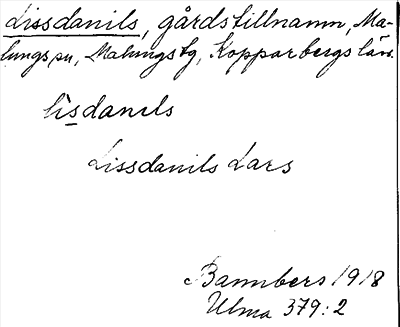 Lissdanils, gårdstillnamn, Ma-
lungs sn, Malungs tg, Kopparbergs län.
lisdanils
Lissdanils Lars
Bannbers 1918
Ulma 379:2